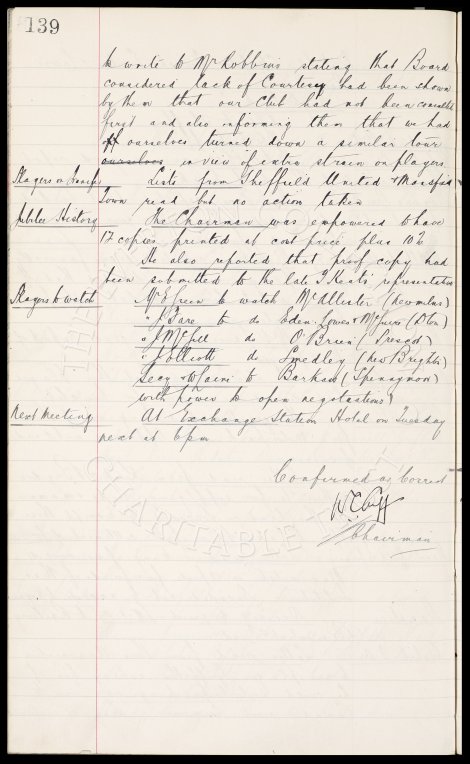 139
to write to Mr Robbins stating that Board
considered lack of Courtesy had been shown
by them that our Club had not been consulted
first and also informing them that we had
ourselves turned down a similar tour
ourselves in view of extra strain on players
Players on Transfer Lists from Sheffield United & Mansfield
Town read but no action taken
Jubilee History The Chairman was empowered to have
12 copies printed at cost price plus 10%
He also reported that proof copy had
been submitted to the late T Keats representative
Players to watch Mr E Green to watch McAllister
" J Sare to do Eden Lowes &
" J McGill do O'Brien (Prescot)
" J Elliott do Smedley (New Brighton)
Secy & to Barkas (Spennymoor)
with power to open negotiations)
Next Meeting At Exchange Station Hotel on Tuesday
next at 6 pm
Confirmed as Correct
W C Cuff
Chairman
CHARITABLE